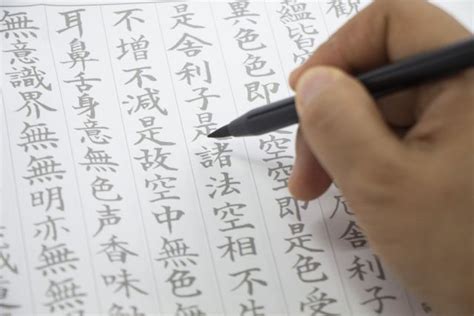 観
蘊皆空厄舎利子
異色色即空空即是色受
是舎利子是諸法空相不生
不増不減是故空中無色
耳鼻舌身意無色声香味
無意識界無無明亦無